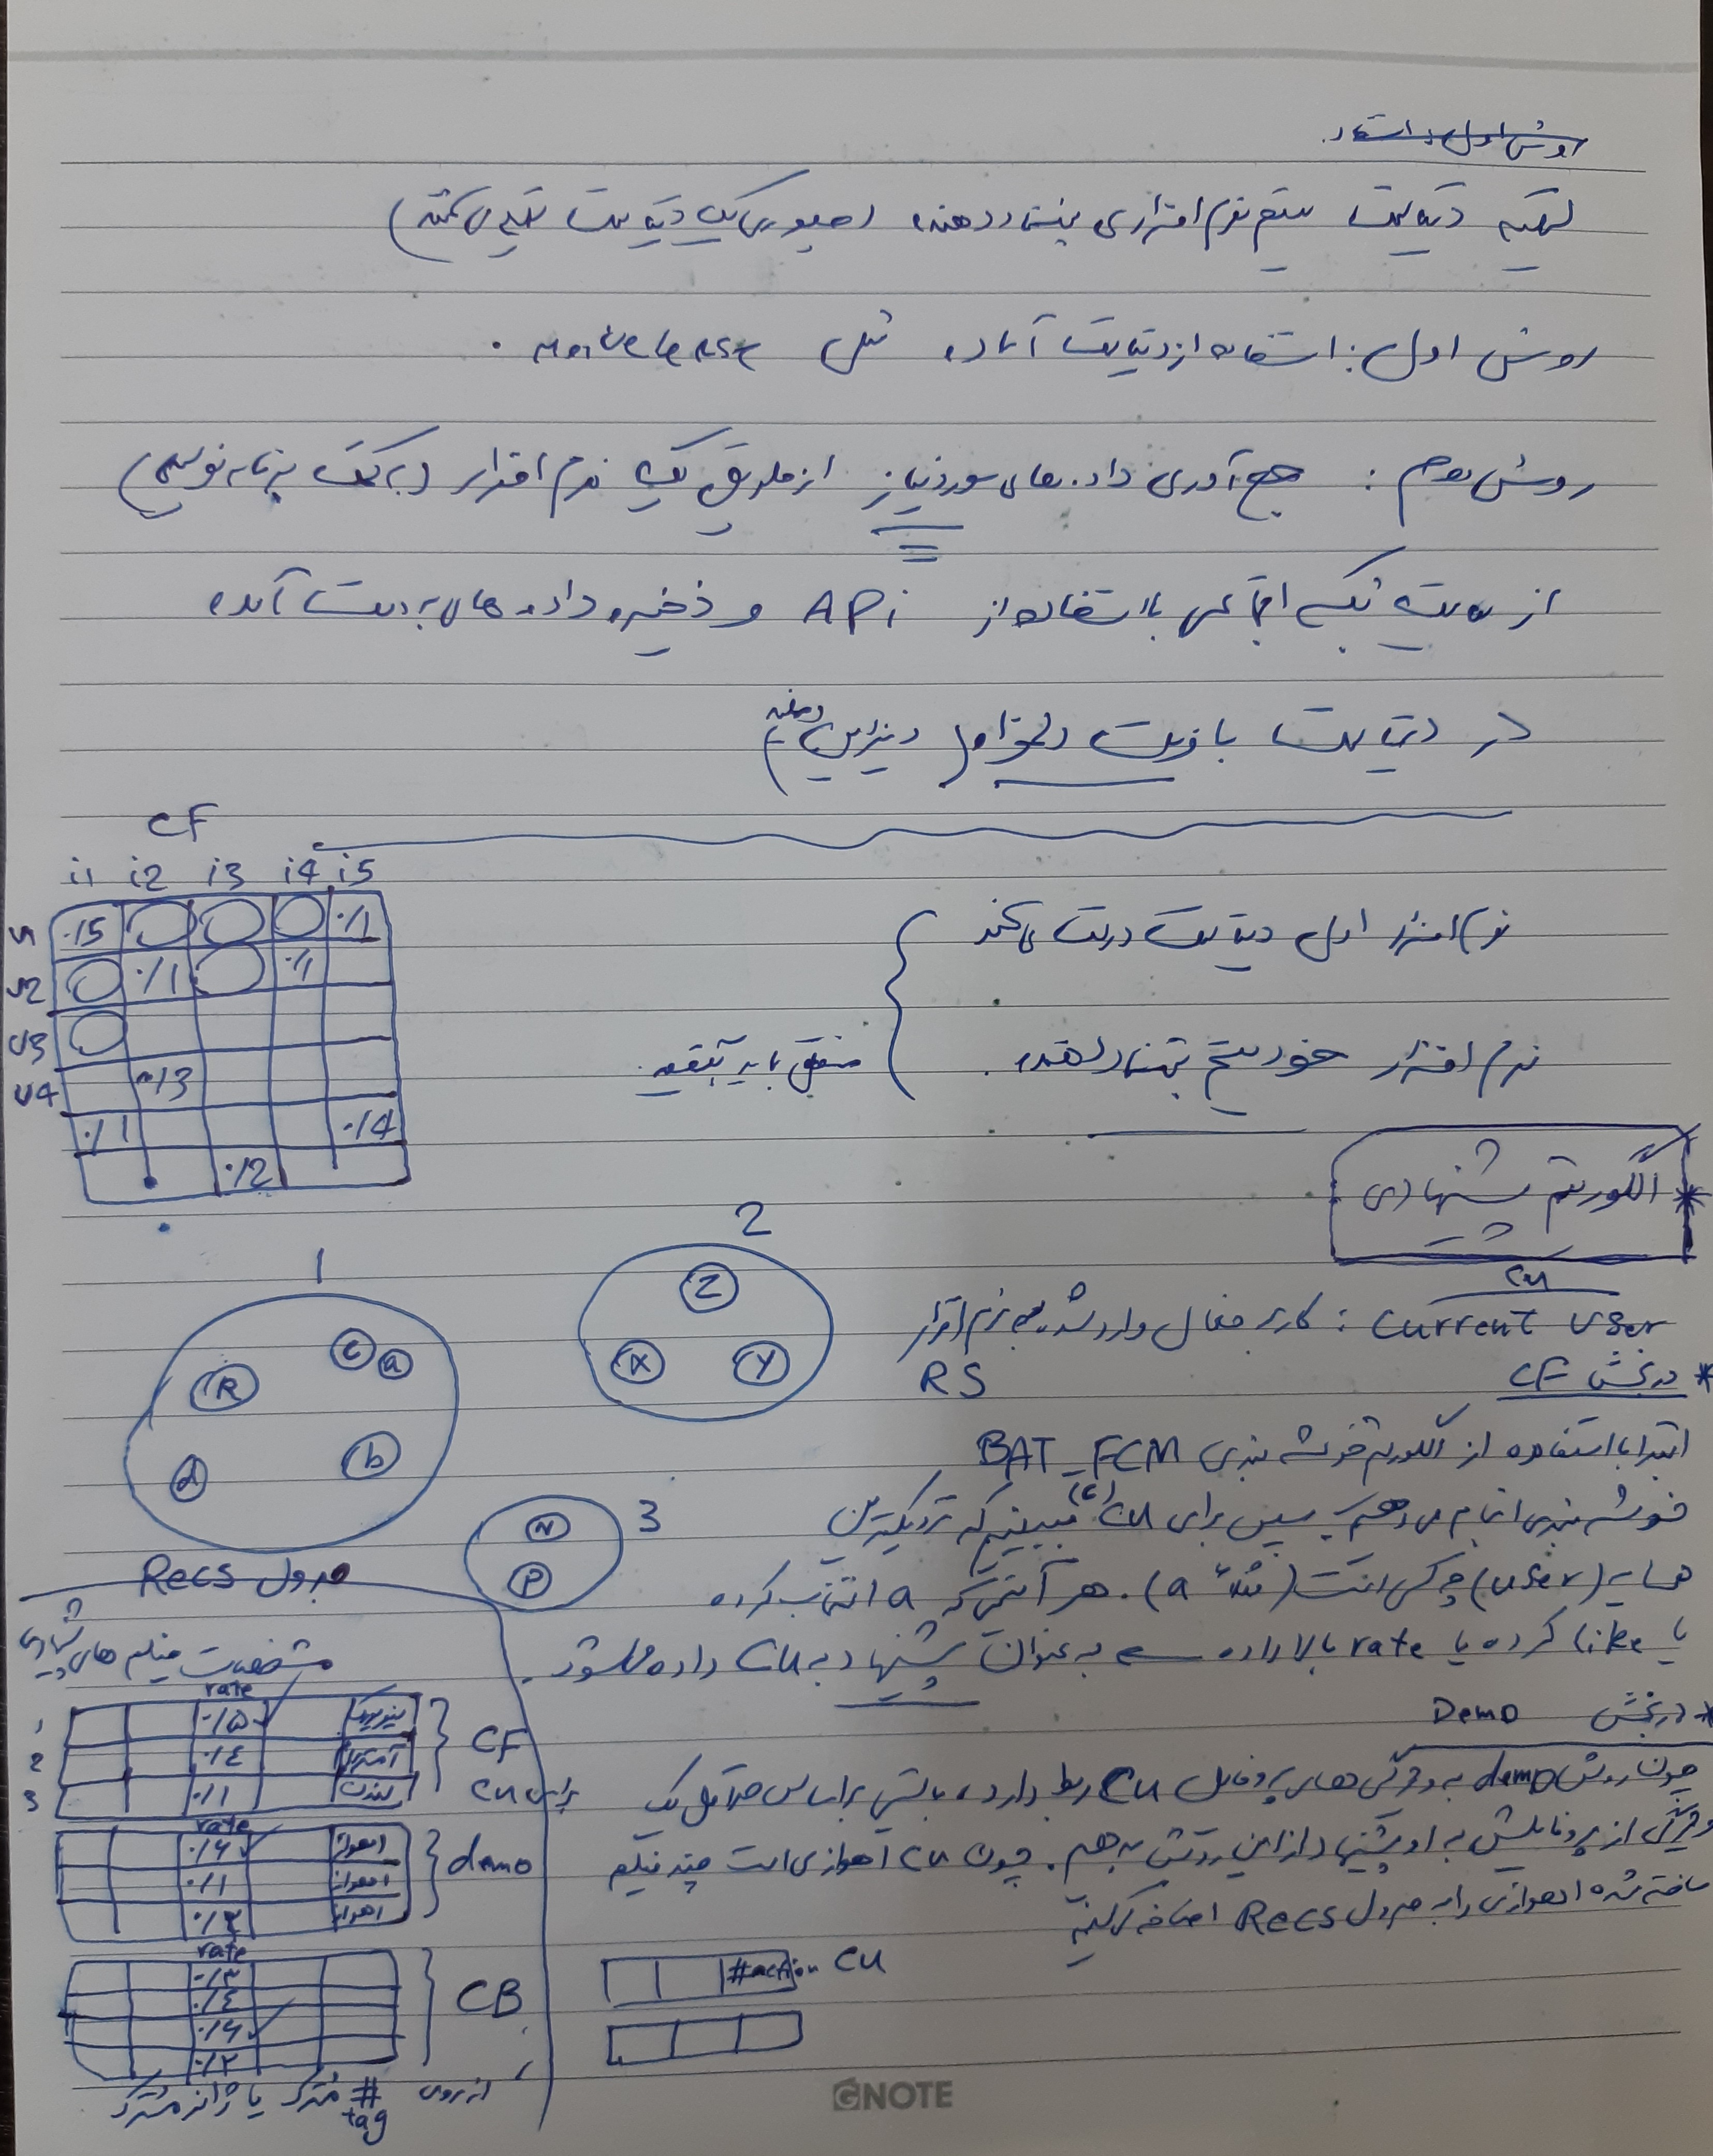 روش اول: استفاد
تهیه دیتاست سیستم نرم افزاری پیشنهاد دهنده (چطوری یک دیتاست تهیه می کنند)
روش اول: استفاده از دیتاست آماده مثل Movielense .
روش دوم: جمع آوری داده های مورد نیاز از طریق یک نرم افزار (به کمک برنامه نویسی)
از سایت شبکه اجتماعی با استفاده از API و ذخیره داده های به دست آمده
در دیتاست با فرمت دلخواه (دیتابیس)
CF
i1 i2 i3 i4 i5
u1 ./5 ./1
u2 ./1 ./1
u3
u4 ./3
./1 ./4
./2
نرم افزار اول دیتاست درست می کند
نرم افزار خود سیستم پیشنهاد دهنده.
* الگوریتم پیشنهادی
1
R c a d b
2
Z X Y
3
N P
CU
Current User : کاربر فعال وارد شده به نرم افزار
RS
* در بخش CF
ابتدا با استفاده از الگوریتم خوشه بندی BAT_FCM
خوشه بندی انجام می دهیم. سپس برای CU (c) میبینیم که نزدیکترین
همسایه (user) چه کسی است (مثلاً a). هر آیتمی که a انتخاب کرده
یا like کرده یا rate بالا داده به عنوان پیشنهاد به CU داده میشود.
* در بخش Demo
چون روش demo به ویژگی های پروفایل CU ربط دارد، بایستی براساس حداقل یک
ویژگی از پروفایلش به او پیشنهاد از این روش بدهیم. چون CU اهوازی است چند فیلم
ساخته شده اهوازی را به جدول Recs اضافه می کنیم
جدول Recs
مشخصات فیلم های پیشنهادی
rate
1 ./۵
2 ./٤ آمریکا
3 ./۱ لندن
CF
برای CU
rate
./۶ اهواز
./۱ اهواز
./۲ اهواز
demo
rate
./۳
./٤
./۶
./۲
CB
از روی # tag مشترک یا ژانر مشترک
#action CU
GNOTE